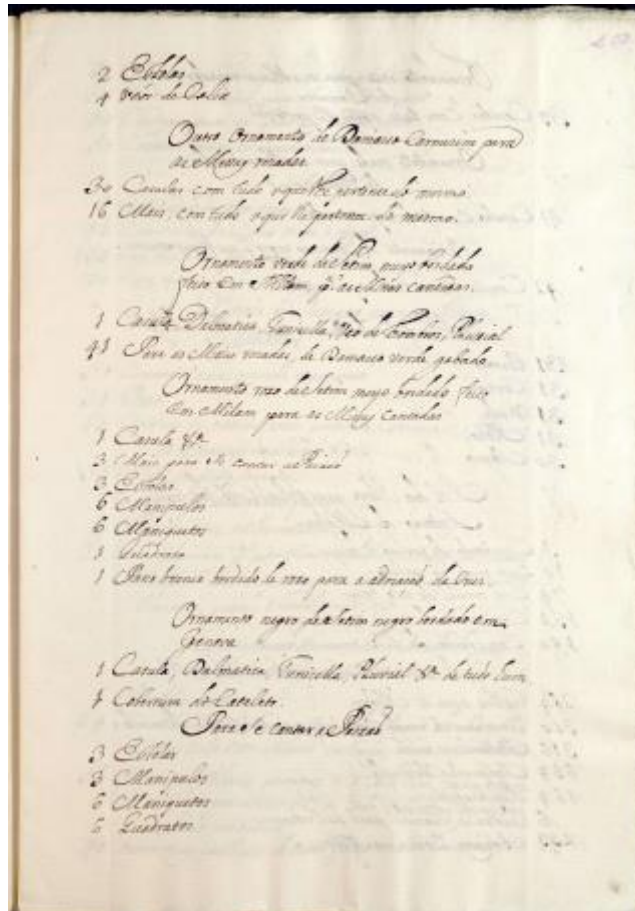 2 Estolas
1 Veos de Calix
Outro Ornamento de Damasco Carmesim para
as Missas rezadas
30 Casulas com tudo o que lhe pertence do mesmo
16 Mais com tudo o que lhe pertence do mesmo.
Ornamento verde de Setim bordado
feito em Milam, pª as Missas cantadas.
1 Casula, Dalmatica, Tunicella, Veo de hombros, Pluvial
41 Para as Missas rezadas, de Damasco verde
Ornamento roxo de Setim bordado feito
em Milam para as Missas Cantadas
1 Casula &ª
3 Mais para se cantar a Paixaõ
3 Estolas
6 Manipulos
6 Maniquetos
1 Quadrato
1 Pano branco bordado de roxo para a adoraçaõ da Cruz.
Ornamento negro de Setim negro bordado em
Genova
1 Casula, Dalmatica, Tunicella, Pluvial &ª de tudo
1 Cobertura do Cataleto.
Para se cantar a Paixaõ
3 Estolas
3 Manipulos
6 Maniquetos
6 Quadratos